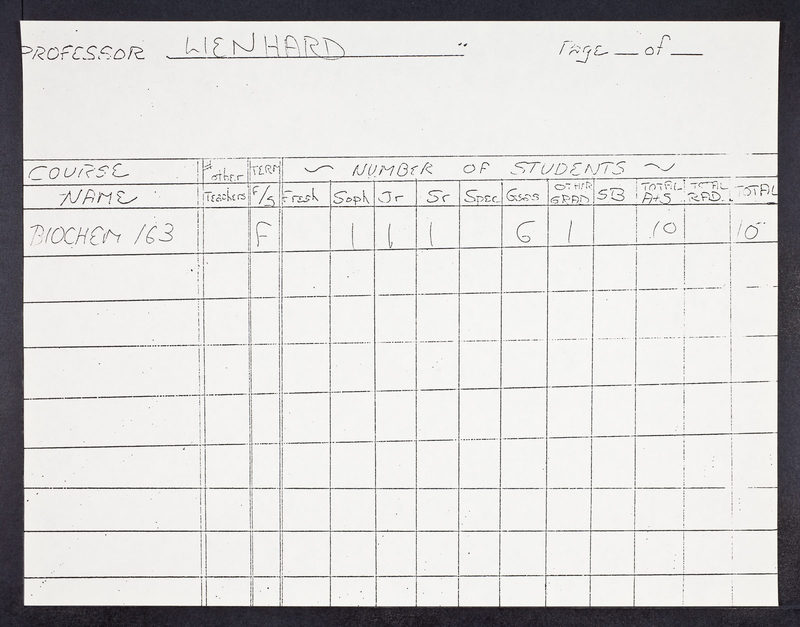 PROFESSOR LIENHARD Page __ of __
COURSE NAME # other Teachers TERM F/S ~ NUMBER OF STUDENTS ~
Fresh Soph Jr Sr Spec Gsas OTHER GRAD SB TOTAL A+S TOTAL RAD. TOTAL
BIOCHEM 163 F 1 1 1 6 1 10 10